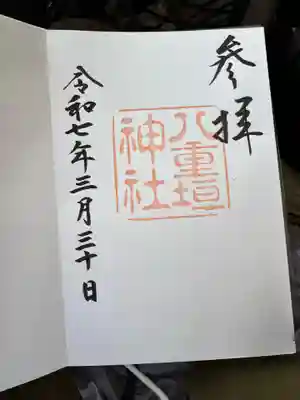 參拝
八重垣
神社
令和七年三月三十日